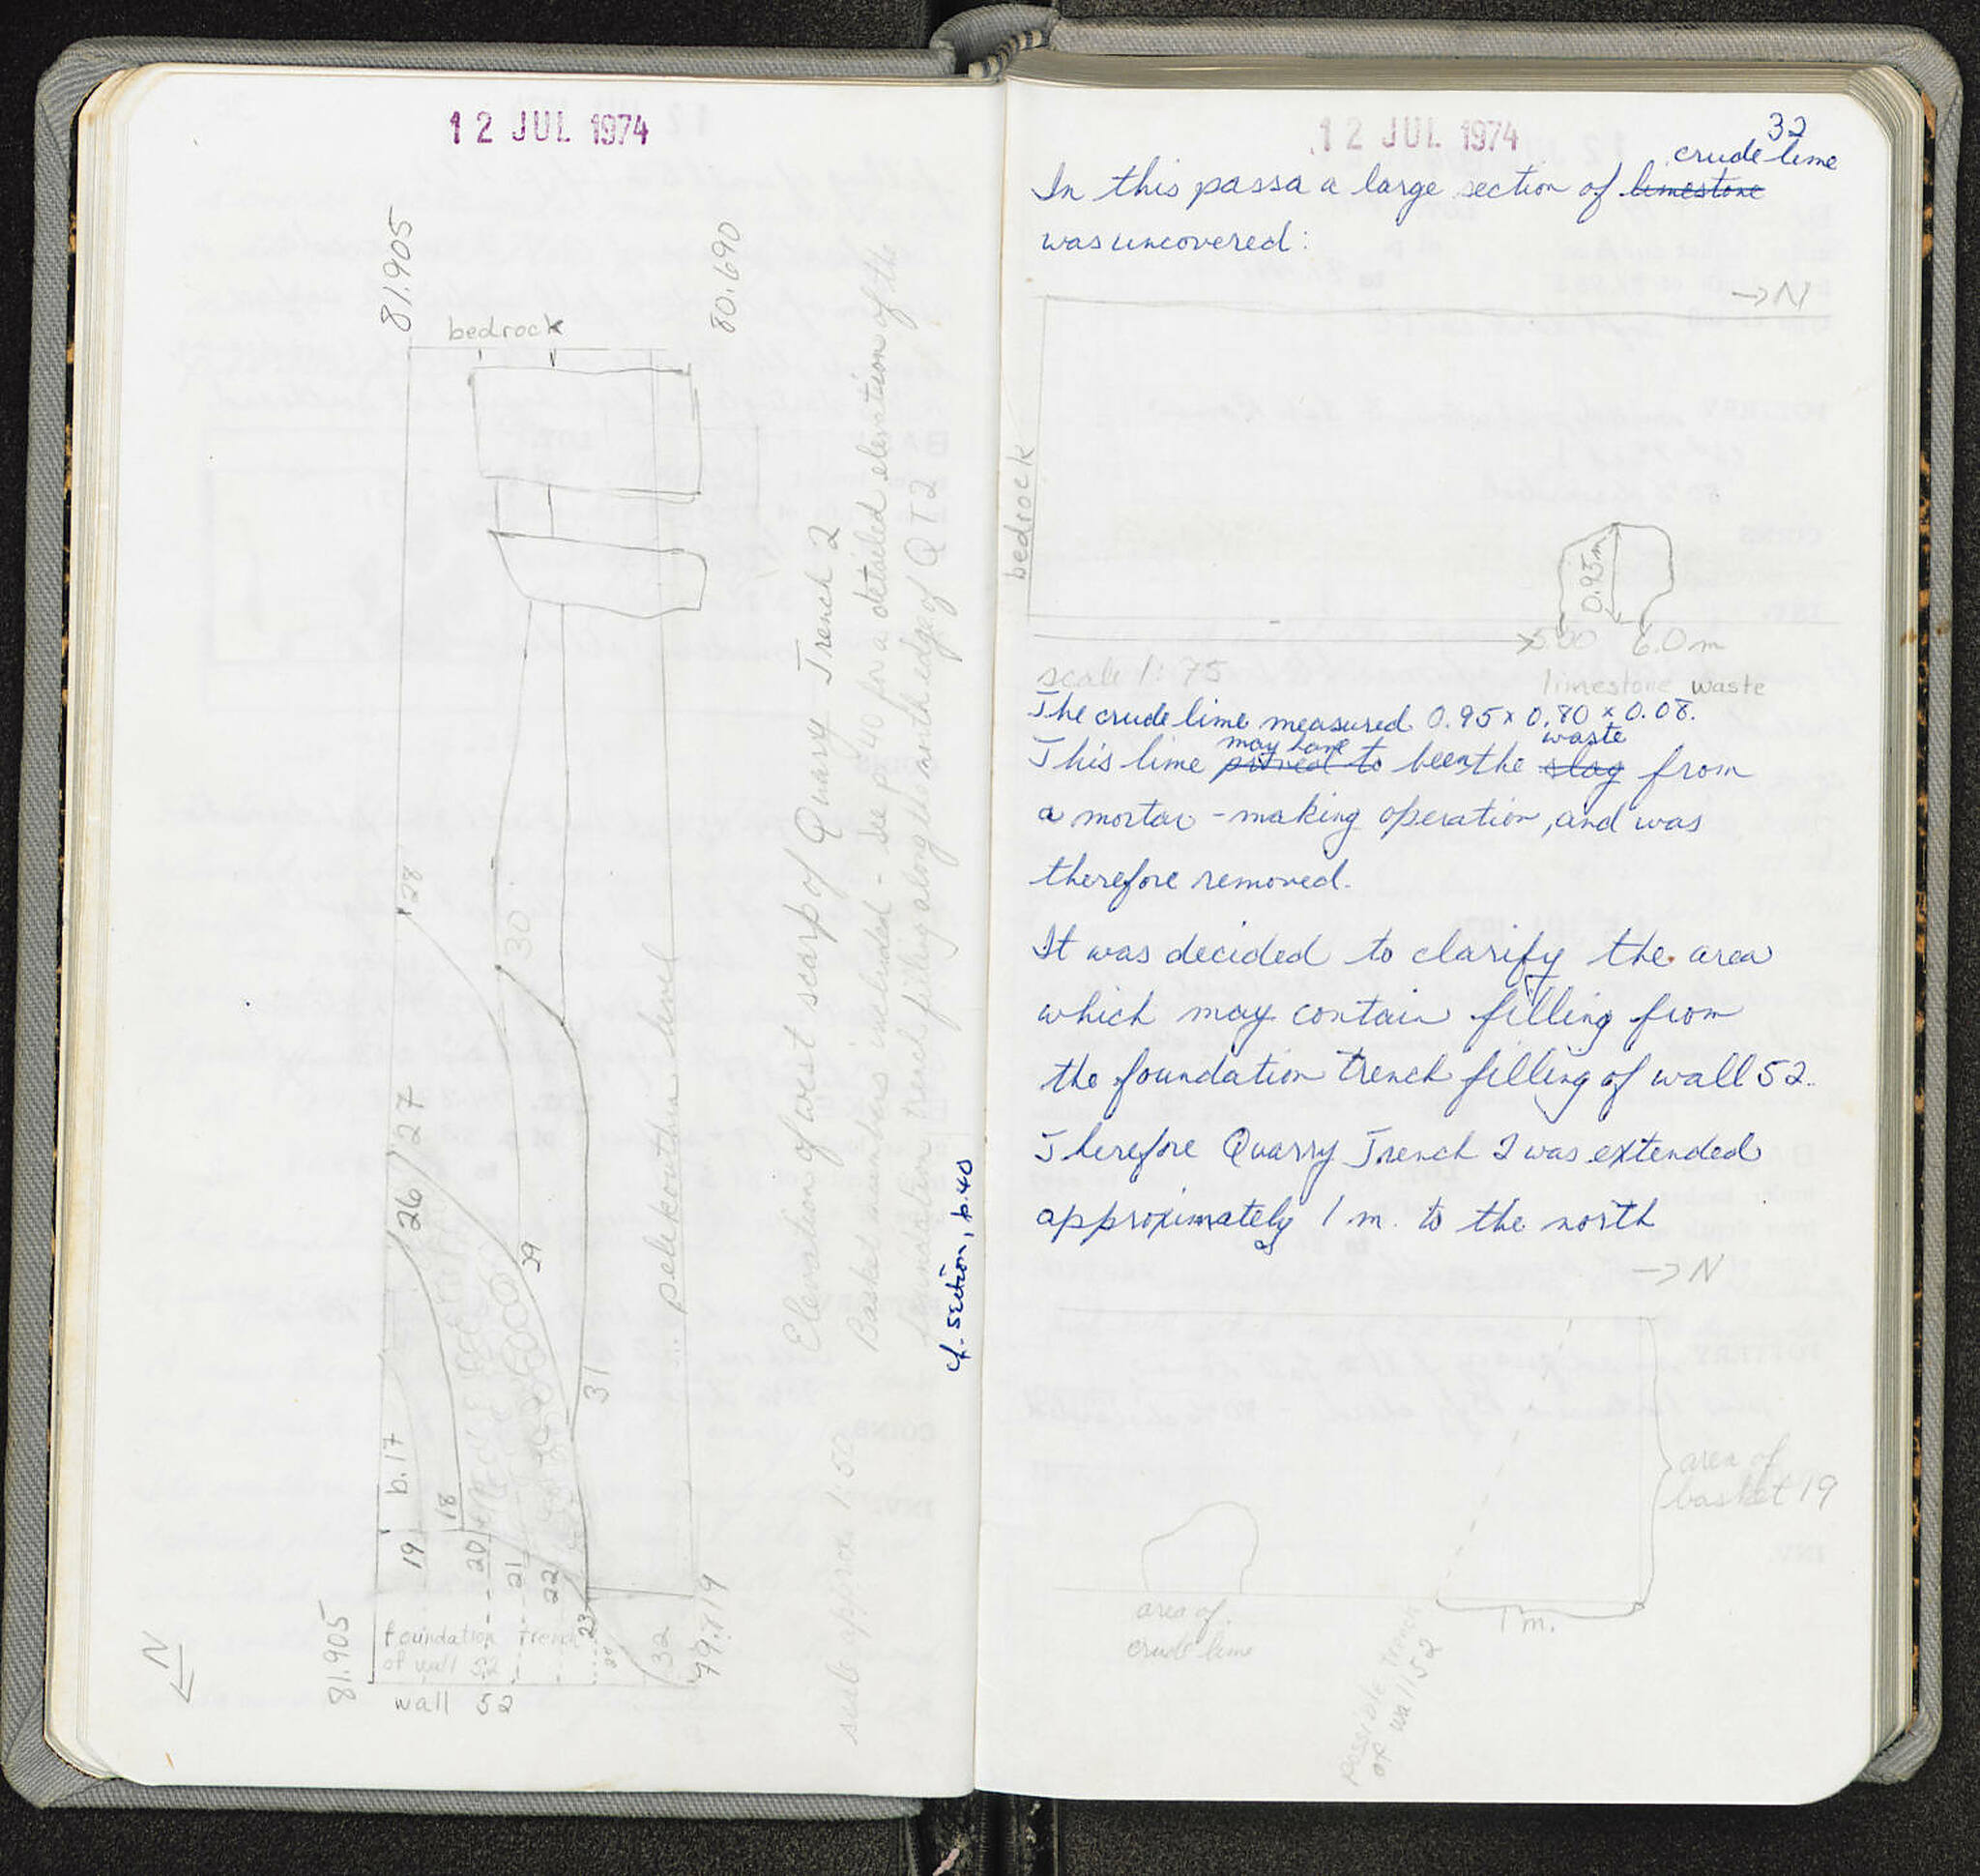 12 JUL 1974
81.905
80.690
bedrock
28
30
26
27
29
31
b.17
18
19
20
21
22
23
32
pelekouthia level
foundation trench
of wall 52
wall 52
81.905
79.819
N
Elevation of west scarp of Quarry Trench 2
Basket numbers included - see p. 40 for a detailed elevation of the
foundation trench filling along the north edge of QT2
scale approx 1:50
cf. section, p. 40
12 JUL 1974
32
crude lime
In this passa a large section of limestone
was uncovered:
→N
bedrock
0.95m
5.00 6.0m
scale 1:75
limestone waste
The crude lime measured 0.95 x 0.80 x 0.08.
may have waste
This lime proved to been the slag from
a mortar-making operation, and was
therefore removed.
It was decided to clarify the area
which may contain filling from
the foundation trench filling of wall 52.
Therefore Quarry Trench 2 was extended
approximately 1 m. to the north
→N
area of
basket 19
area of
crude lime
1 m.
possible trench
of wall 52